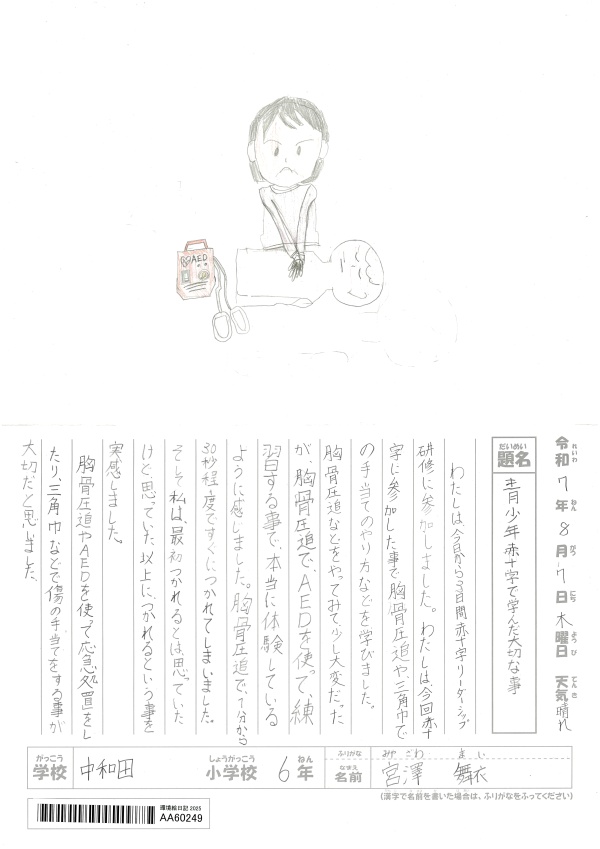 AED
令和7年8月7日木曜日 天気晴れ
れいわ ねん がつ にち ようび てんき
だいめい
題名
青少年赤十字で学んだ大切な事
わたしは、今日から3日間赤十字リーダーシップ
研修に参加しました。わたしは、今回赤十
字に参加した事で胸骨圧迫や、三角巾で
の手当てのやり方などを学びました。
胸骨圧迫などをやってみて、少し大変だった
が、胸骨圧迫で、AEDを使って、練
習する事で、本当に体験している
ように感じました。胸骨圧迫で、1分から
30秒程度ですぐにつかれてしまいました。
そして私は、最初つかれるとは、思っていた
けど思っていた以上に、つかれるという事を
実感しました。
胸骨圧迫やAEDを使って応急処置をし
たり、三角巾などで傷の手当てをする事が
大切だと思いました。
がっこう しょうがっこう ねん ふりがな みやざわ まい
学校 中和田 小学校 6年 なまえ 名前 宮澤 舞衣
(漢字で名前を書いた場合は、ふりがなをふってください)
環境絵日記 2025
AA60249